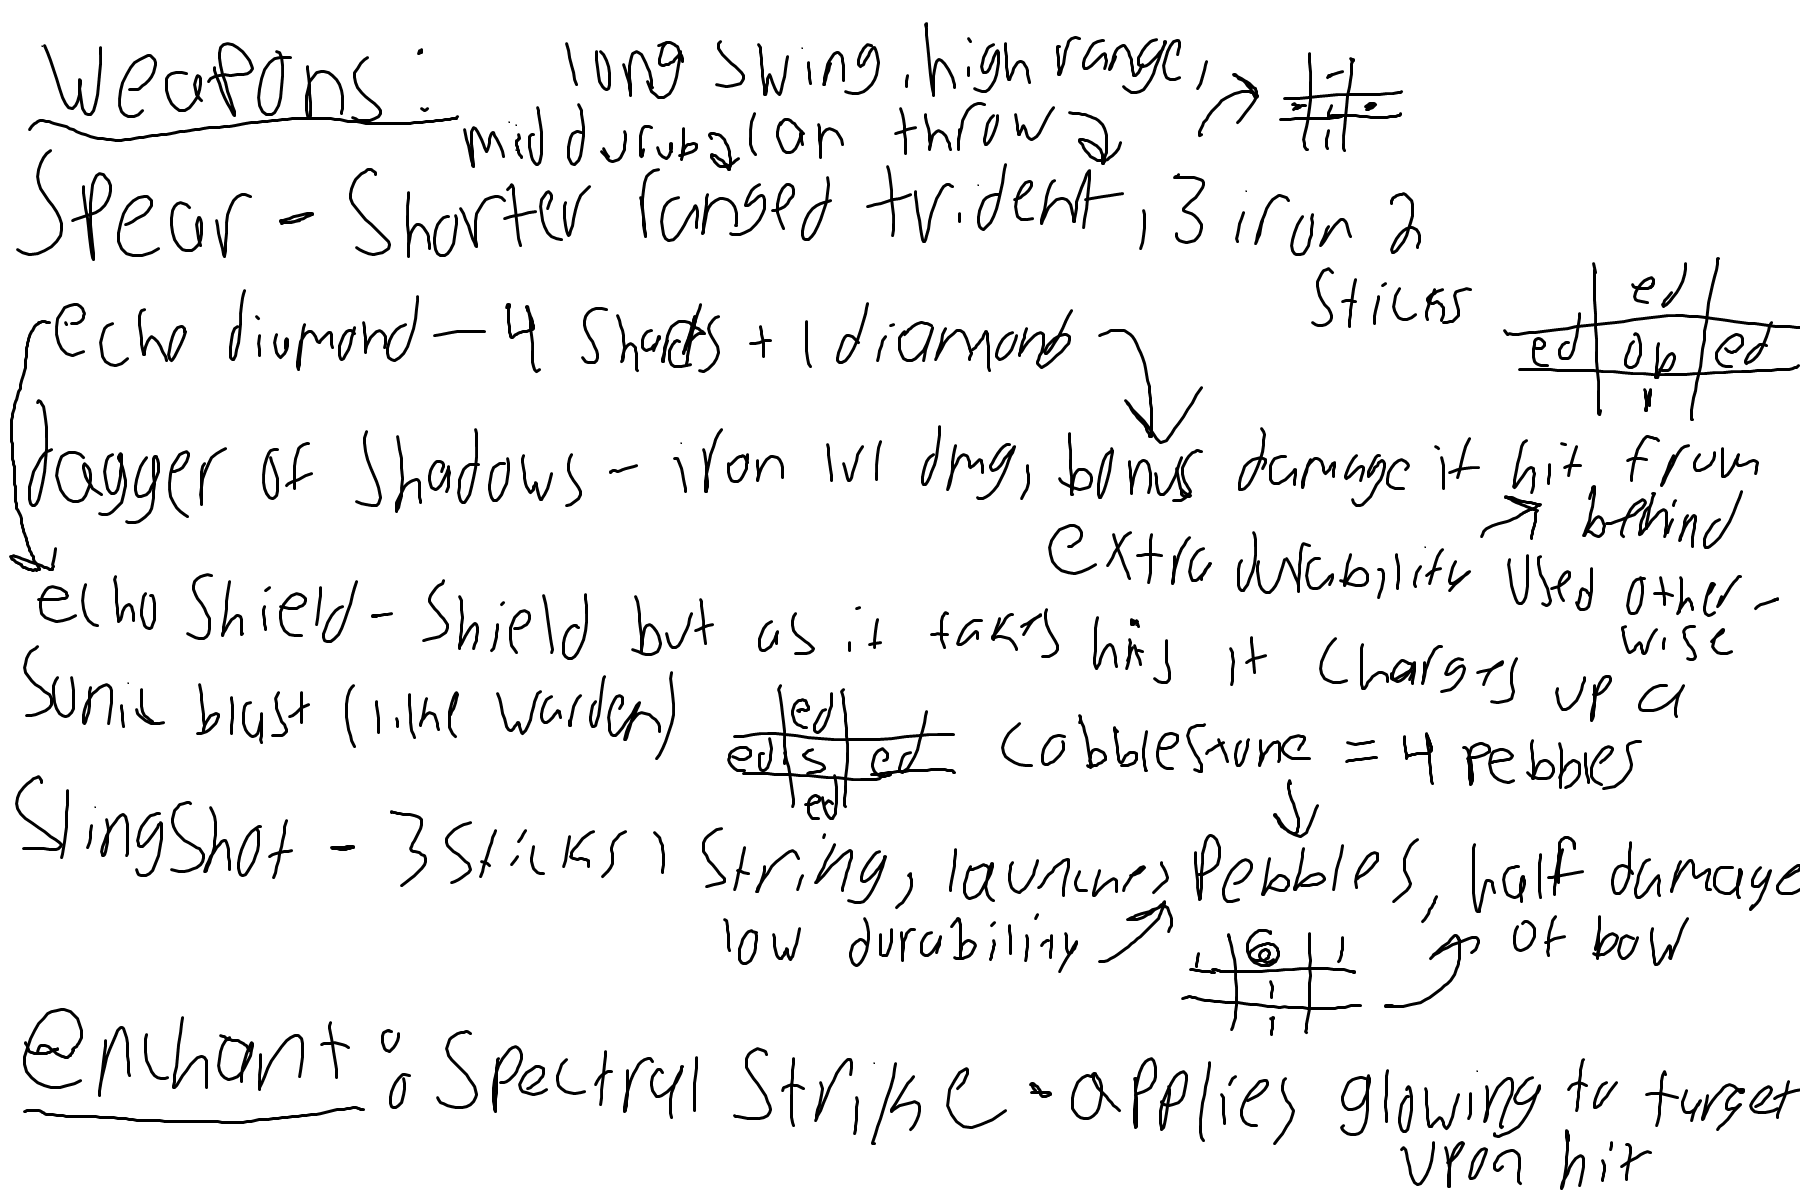 Weapons:
long swing, high range,
mid durubal on throw
Spear - Shorter ranged trident, 3 iron 2
Sticks
echo diamond - 4 Shards + 1 diamond
ed
ed op ed
dagger of Shadows - iron lvl dmg, bonus damage if hit from
behind
extra durability used other-
wise
echo Shield - Shield but as it takes hits it Charges up a
Sunic blast (like Warden)
ed
ed s ed
ed
Cobblestone = 4 pebbles
SlingShot - 3 Sticks 1 String, launches Pebbles, half damage
low durability
of bow
enchant: Spectral Strike - applies glowing to target
upon hit